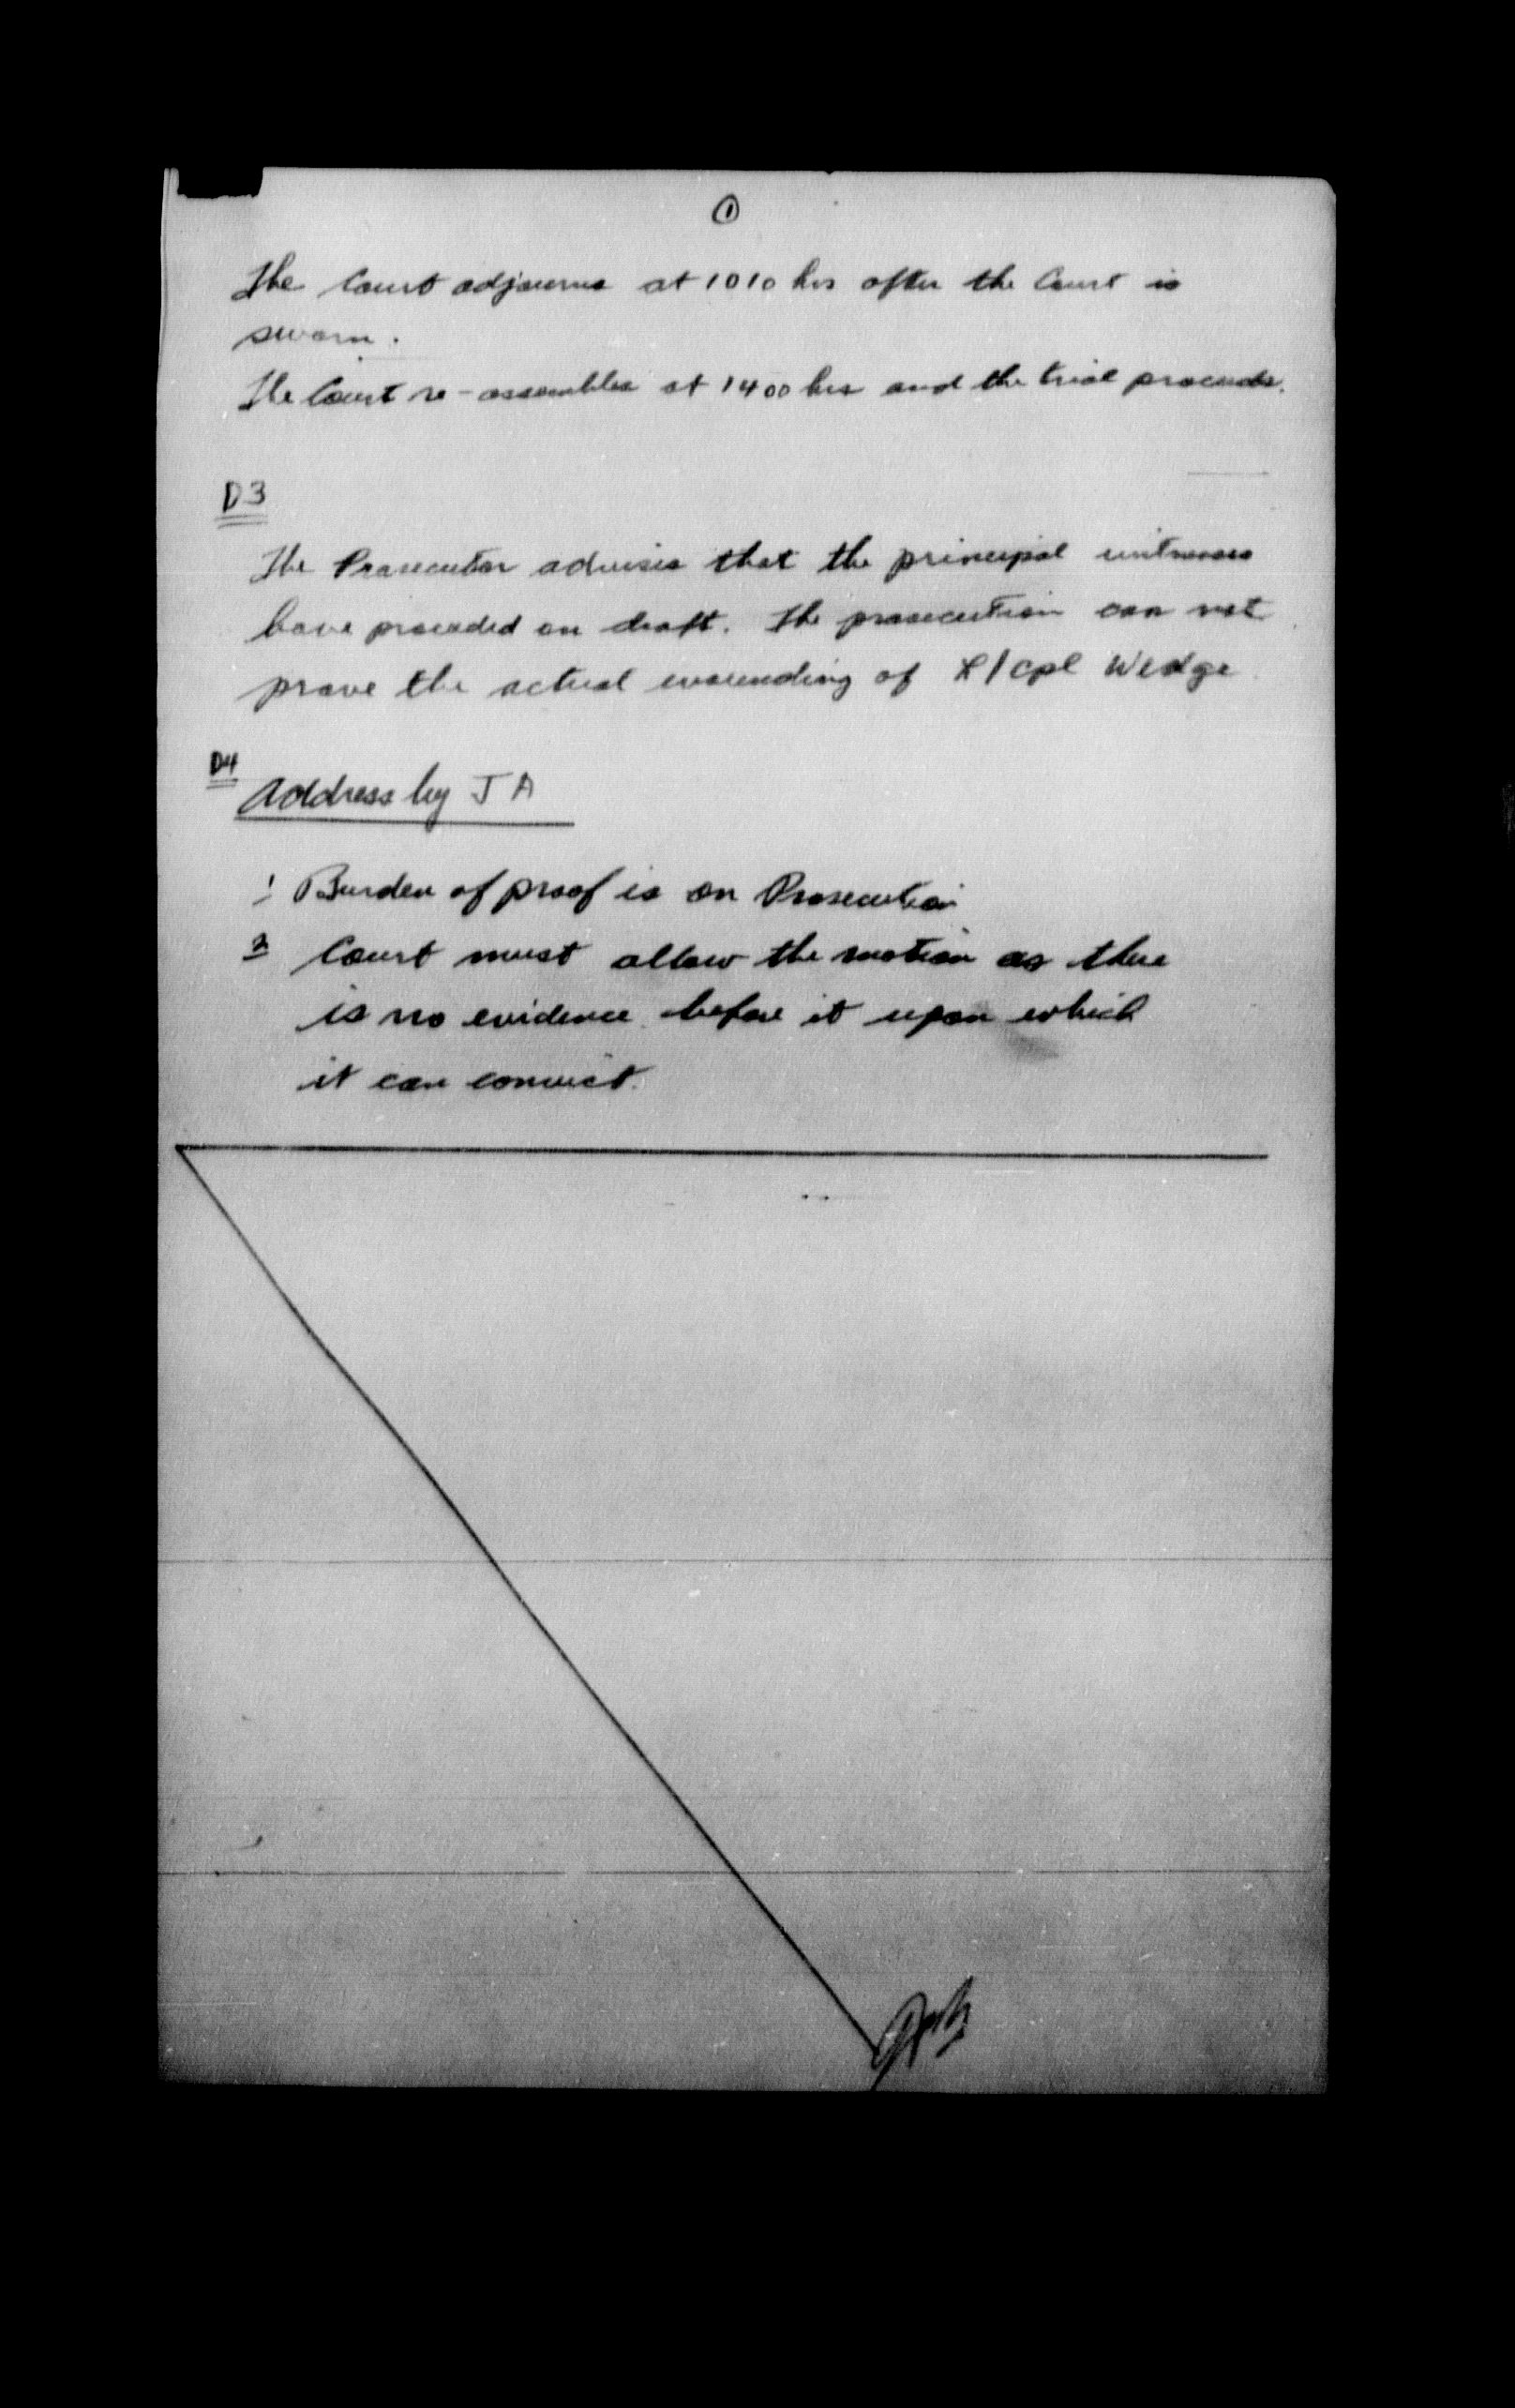 1
The Court adjourns at 1010 hrs after the Court is
sworn.
The Court re-assembles at 1400 hrs and the trial proceeds.
D3
The Prosecutor advises that the principal witnesses
have proceeded on draft. The prosecution can not
prove the actual wounding of L/Cpl Wedge
D4
Address by JA
1 Burden of proof is on Prosecution
2 Court must allow the motion as there
is no evidence before it upon which
it can convict.